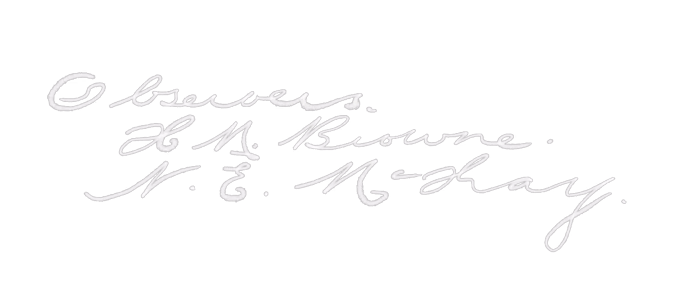 Observers.
H N. Browne.
N. E. McKay.